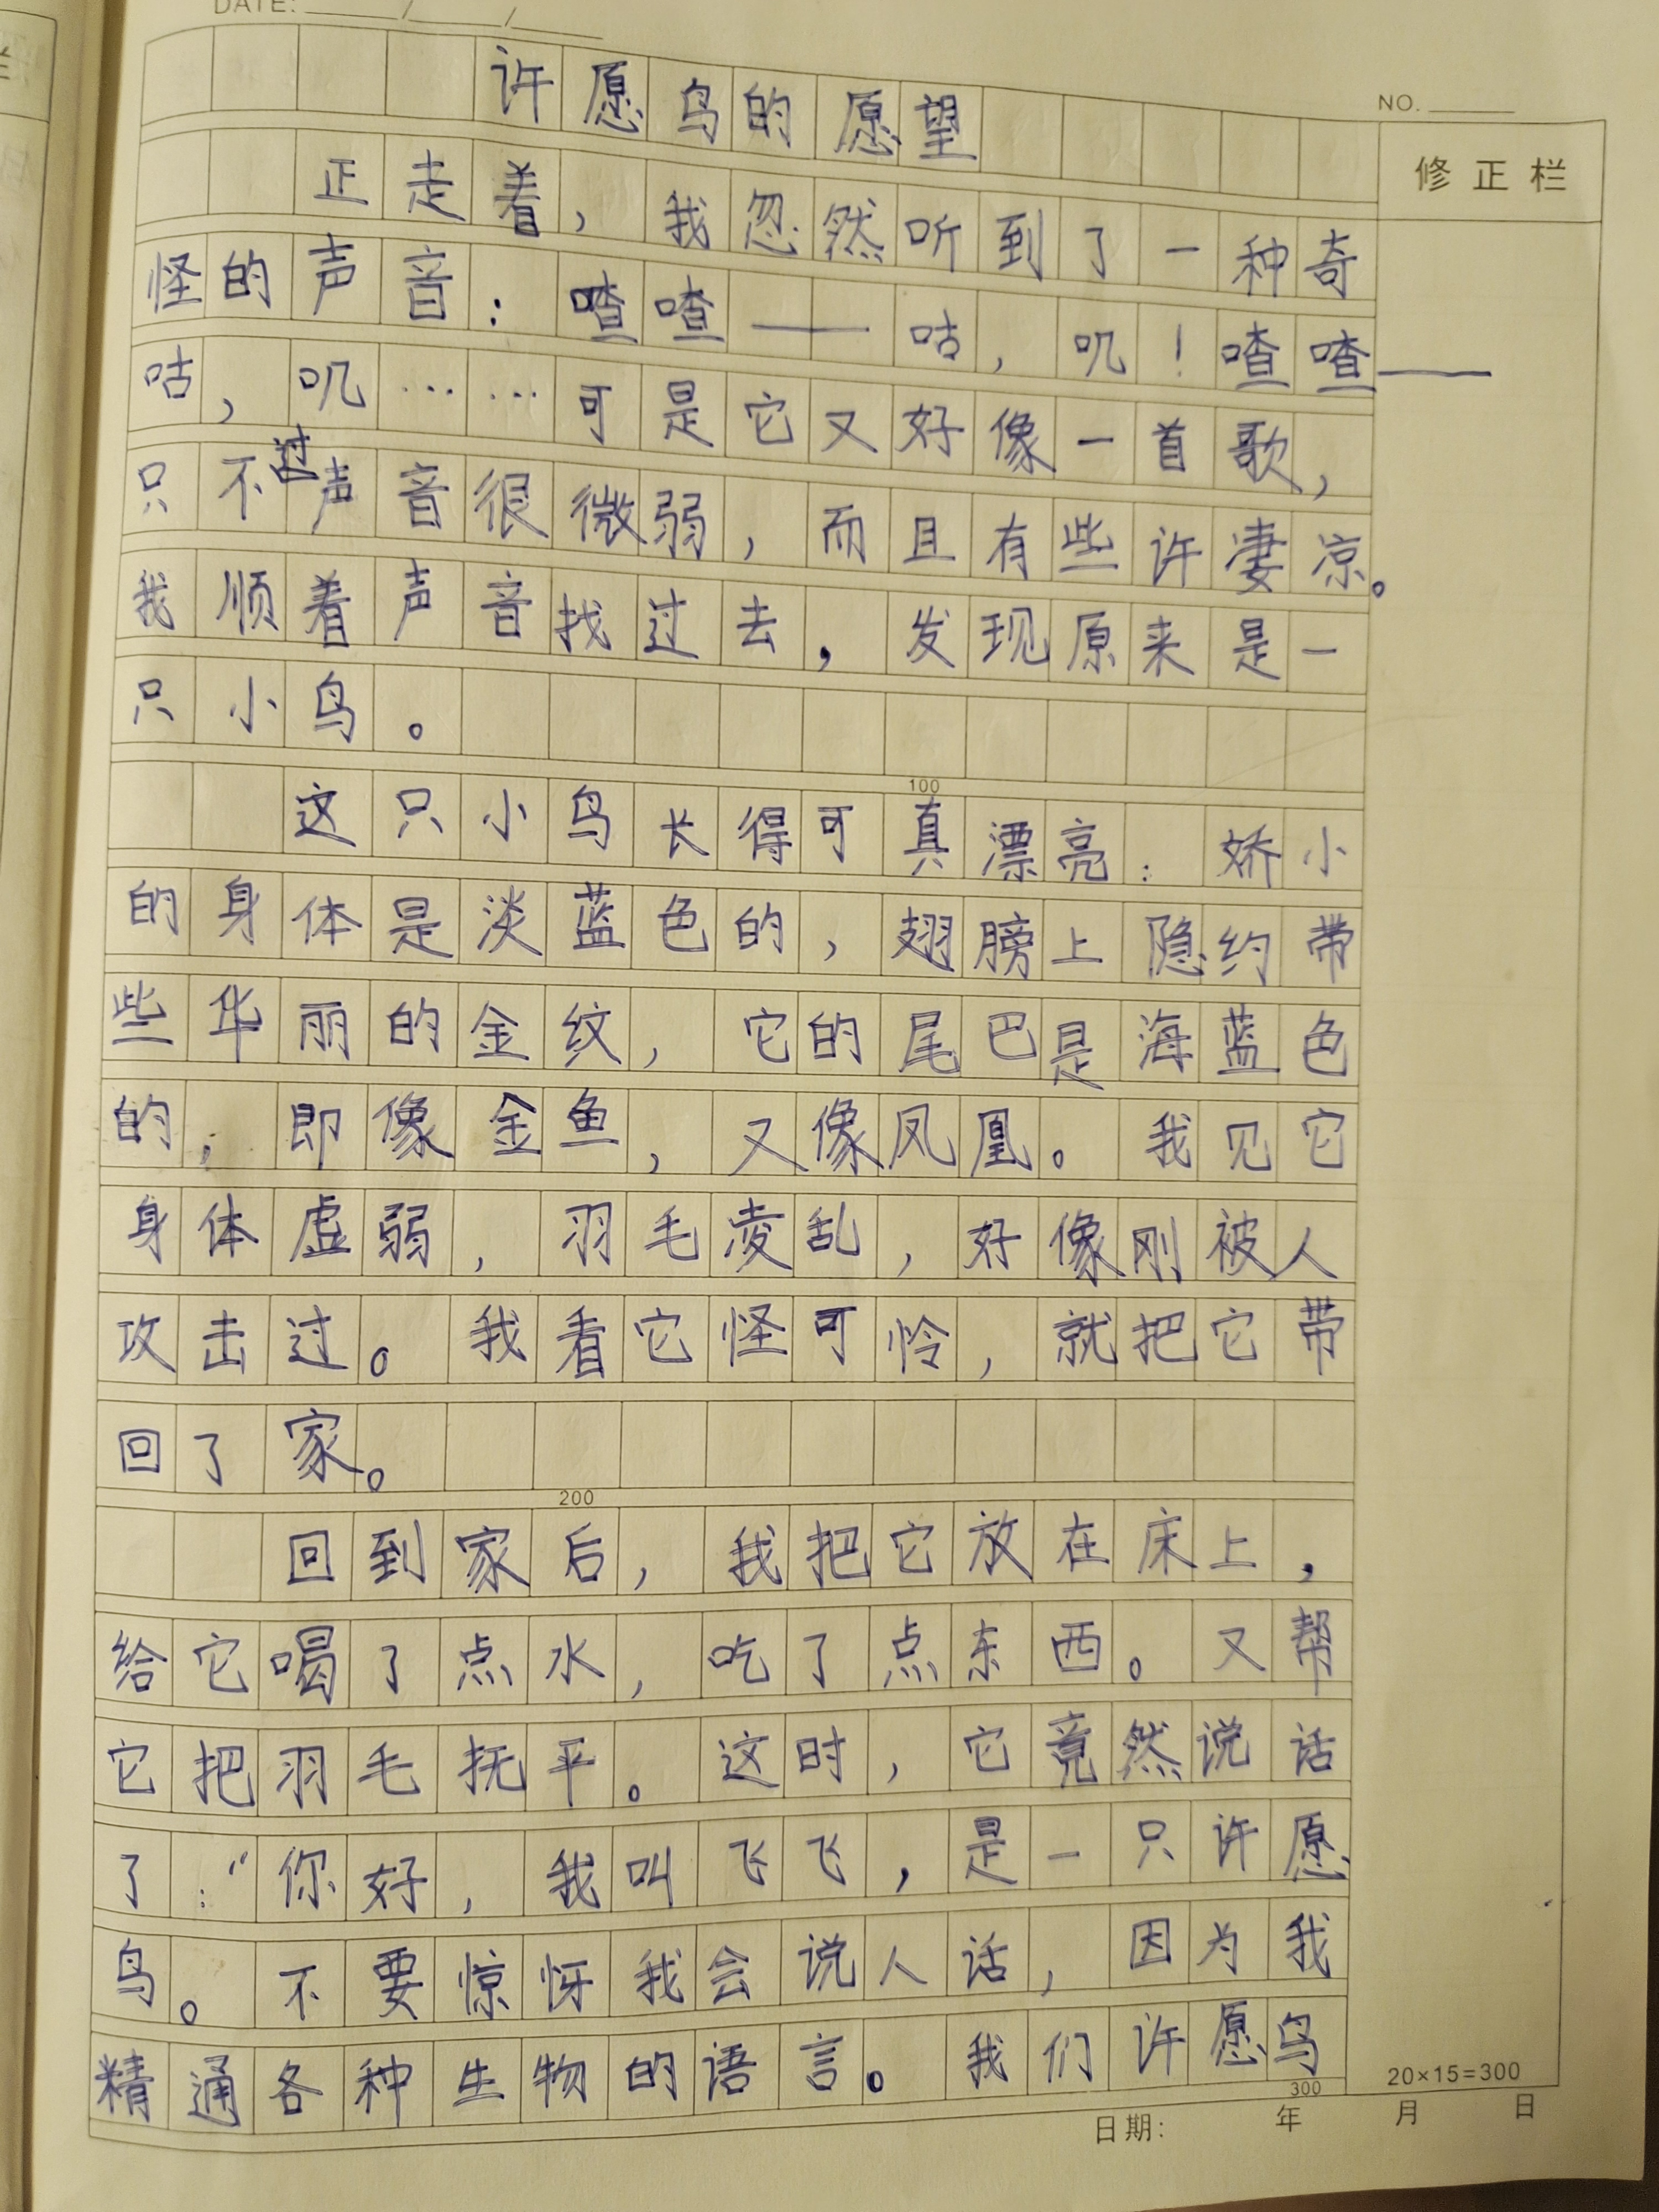 DATE: ____/____/____
NO. ____
许愿鸟的愿望
修正栏
正走着，我忽然听到了一种奇
怪的声音：喳喳——咕，叽！喳喳——
咕，叽……可是它又好像一首歌，
只不过声音很微弱，而且有些许凄凉。
我顺着声音找过去，发现原来是一
只小鸟。
100
这只小鸟长得可真漂亮：娇小
的身体是淡蓝色的，翅膀上隐约带
些华丽的金纹，它的尾巴是海蓝色
的，即像金鱼，又像凤凰。我见它
身体虚弱，羽毛凌乱，好像刚被人
攻击过。我看它怪可怜，就把它带
回了家。
200
回到家后，我把它放在床上，
给它喝了点水，吃了点东西。又帮
它把羽毛抚平。这时，它竟然说话
了：“你好，我叫飞飞，是一只许愿
鸟。不要惊讶我会说人话，因为我
精通各种生物的语言。我们许愿鸟
300
20×15=300
日期： 年 月 日